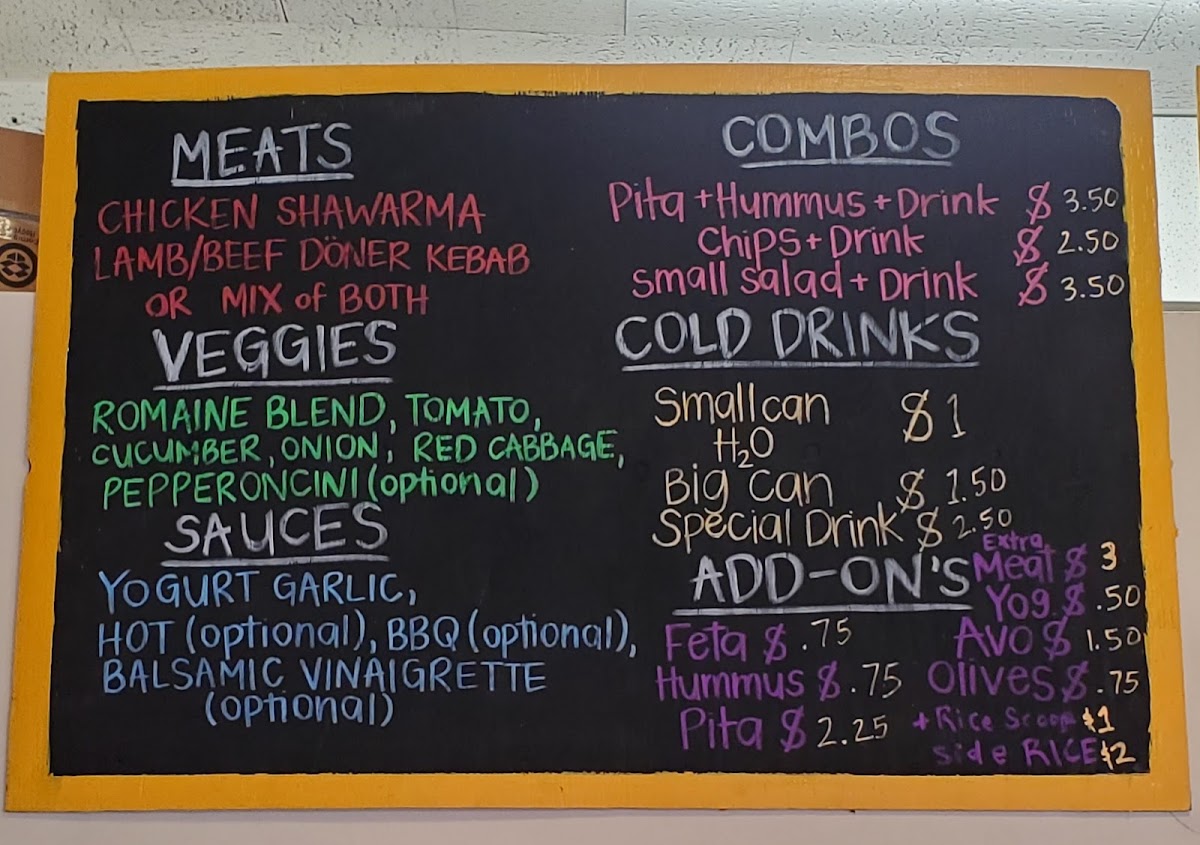 MEATS
CHICKEN SHAWARMA
LAMB/BEEF DÖNER KEBAB
OR MIX of BOTH
VEGGIES
ROMAINE BLEND, TOMATO,
CUCUMBER, ONION, RED CABBAGE,
PEPPERONCINI (optional)
SAUCES
YOGURT GARLIC,
HOT (optional), BBQ (optional),
BALSAMIC VINAIGRETTE
(optional)
COMBOS
Pita + Hummus + Drink $ 3.50
Chips + Drink $ 2.50
Small Salad + Drink $ 3.50
COLD DRINKS
Small can $ 1
H₂O
Big can $ 1.50
Special Drink $ 2.50
ADD-ON'S
Extra
Meat $ 3
Yog $ .50
Feta $ .75 Avo $ 1.50
Hummus $ .75 Olives $ .75
Pita $ 2.25 + Rice Scoop $1
side RICE $2